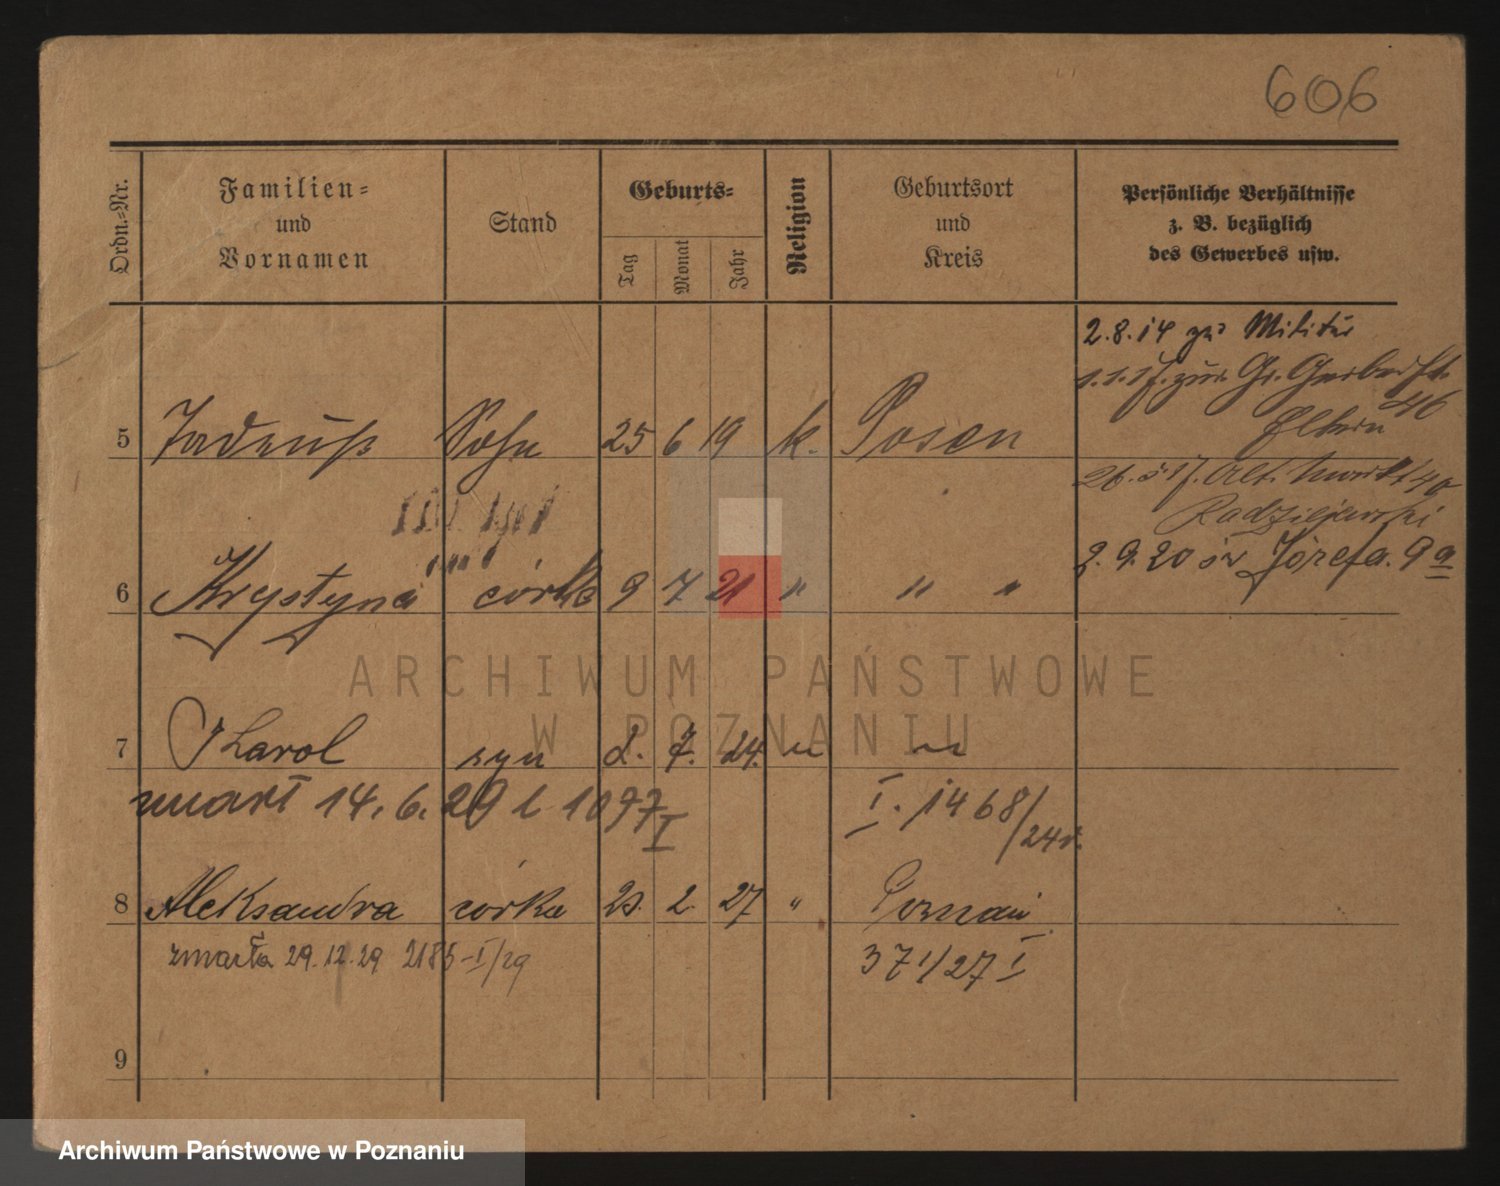 606
Ordn.=Nr.
Familien=
und
Vornamen
Stand
Geburts=
Tag
Monat
Jahr
Religion
Geburtsort
und
Kreis
Persönliche Verhältnisse
z. B. bezüglich
des Gewerbes usw.
2.8.14 zu Militär
1.1.17. zur. Gr. Gerberst.
46
Eltern
5 Tadeusz Sohn 25 6 19 k. Posen
26.5.17. Alt. Markt
Radziejewski
2.9.20 św Józefa. 9a
6 Krystyna córka 9 7 21 " " "
7 Karol syn 2. 7. 24. " "
zmarł 14.6.29 1097 I
I. 1468/24r.
8 Aleksandra córka 2. 27 " Poznań
zmarła 29.12.29 2185-I/29
371/27 I
9
ARCHIWUM PAŃSTWOWE
W POZNANIU
Archiwum Państwowe w Poznaniu